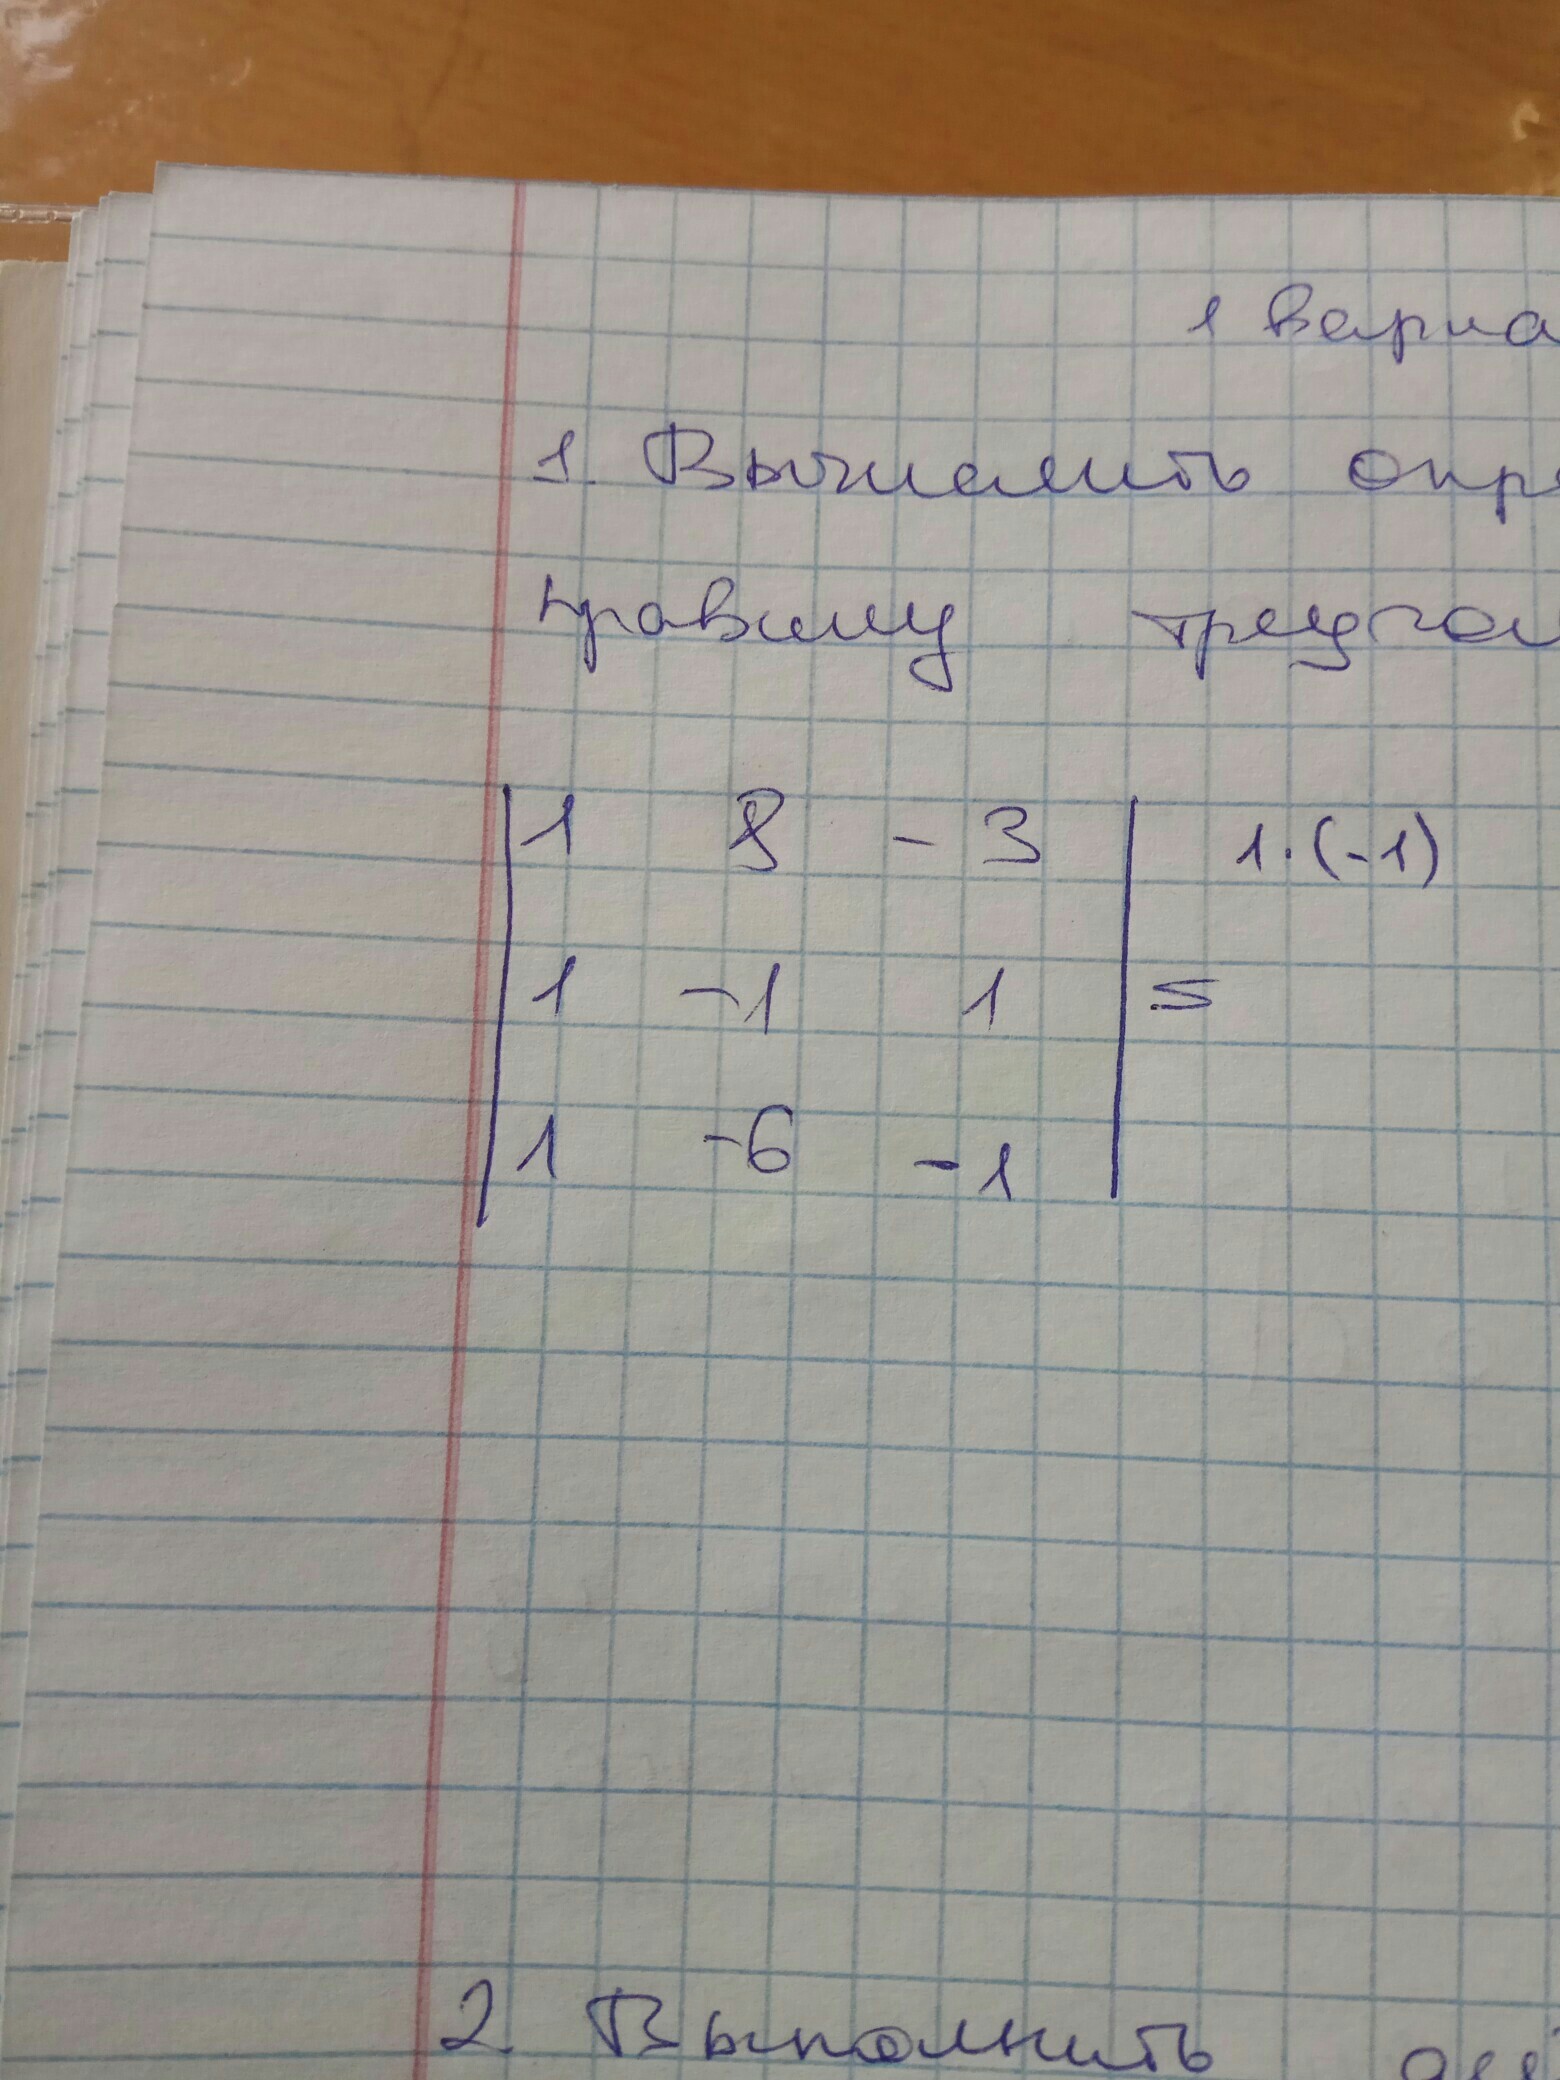 1 вариа
1. Вычислить опре
правилу треугол
1 8 -3 1·(-1)
1 -1 1 =
1 -6 -1
2. Выполнить дей